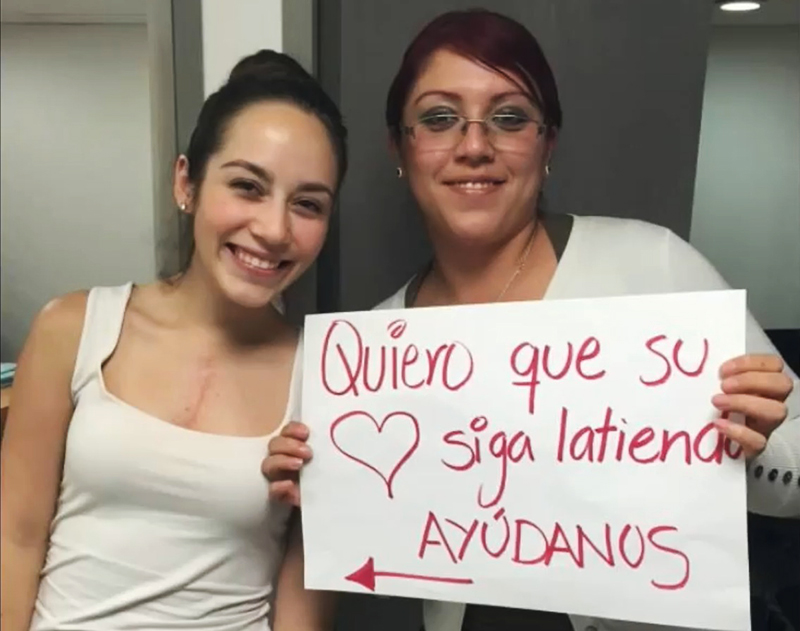 Quiero que su
siga latiendo
AYÚDANOS